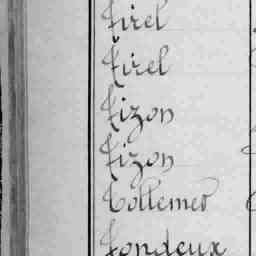 Tirel
Tirel
Tizon
Tizon
Tollemer
Tondeux